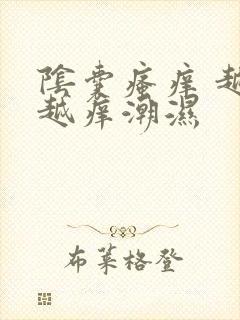 陰囊瘙痒 越
越痒潮濕
布萊格登